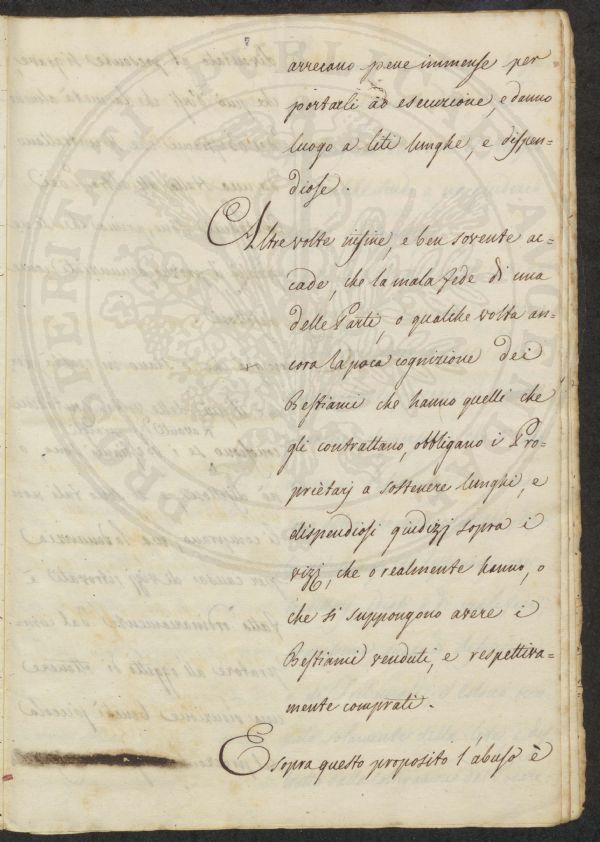 arrecano pene immense per
portarli ad esecuzione, e danno
luogo a liti lunghe, e dispen-
diose.
Altre volte infine, e ben sovente ac-
cade, che la mala fede di una
delle Parti, o qualche volta an-
cora la poca cognizione dei
Bestiami che hanno quelli che
gli contrattano, obbligano i Pro-
prietarj a sostenere lunghi, e
dispendiosi giudizj sopra i
vizj, che o realmente hanno, o
che si suppongono avere i
Bestiami venduti, e respettiva-
mente comprati.
E sopra questo proposito l'abuso è